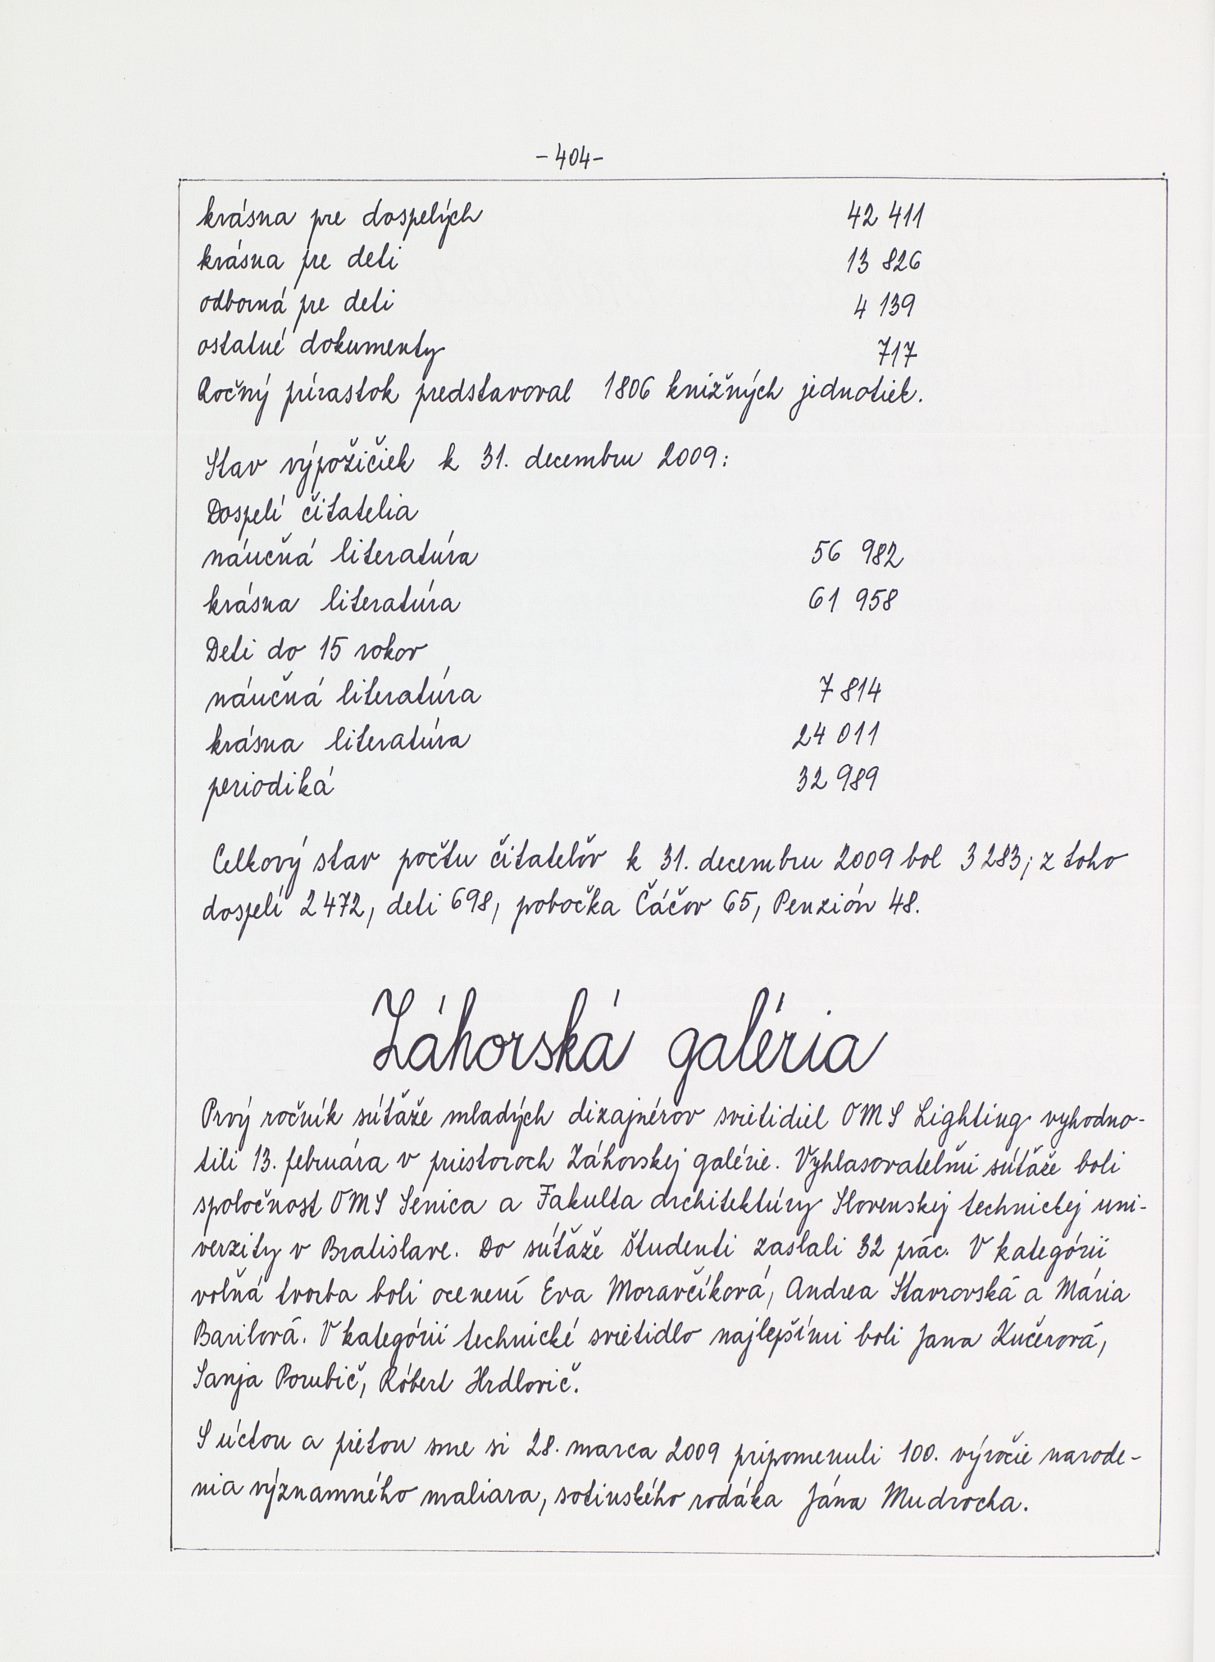 -404-
krásna pre dospelých 42 411
krásna pre deti 13 826
odborná pre deti 4 139
ostatné dokumenty 717
Ročný prírastok predstavoval 1806 knižných jednotiek.
Stav výpožičiek k 31. decembru 2009:
Dospelí čitatelia
náučná literatúra 56 982
krásna literatúra 61 958
Deti do 15 rokov
náučná literatúra 7 814
krásna literatúra 24 011
periodiká 32 989
Celkový stav počtu čitateľov k 31. decembru 2009 bol 3 283; z toho
dospelí 2 472, deti 698, pobočka Čáčov 65, Penzión 48.
Záhorská galéria
Prvý ročník súťaže mladých dizajnérov svietidiel OMS Lighting vyhodno-
tili 13. februára v priestoroch Záhorskej galérie. Vyhlasovateľmi súťaže boli
spoločnosť OMS Senica a Fakulta architektúry Slovenskej technickej uni-
verzity v Bratislave. Do súťaže študenti zaslali 32 prác. V kategórii
voľná tvorba boli ocenení Eva Moravčíková, Andrea Stavrovská a Mária
Barilová. V kategórii technické svietidlo najlepšími boli Jana Kučerová,
Sanja Porubič, Róbert Hrdlovič.
S úctou a pietou sme si 28. marca 2009 pripomenuli 100. výročie narode-
nia významného maliara, sotinského rodáka Jána Mudrocha.